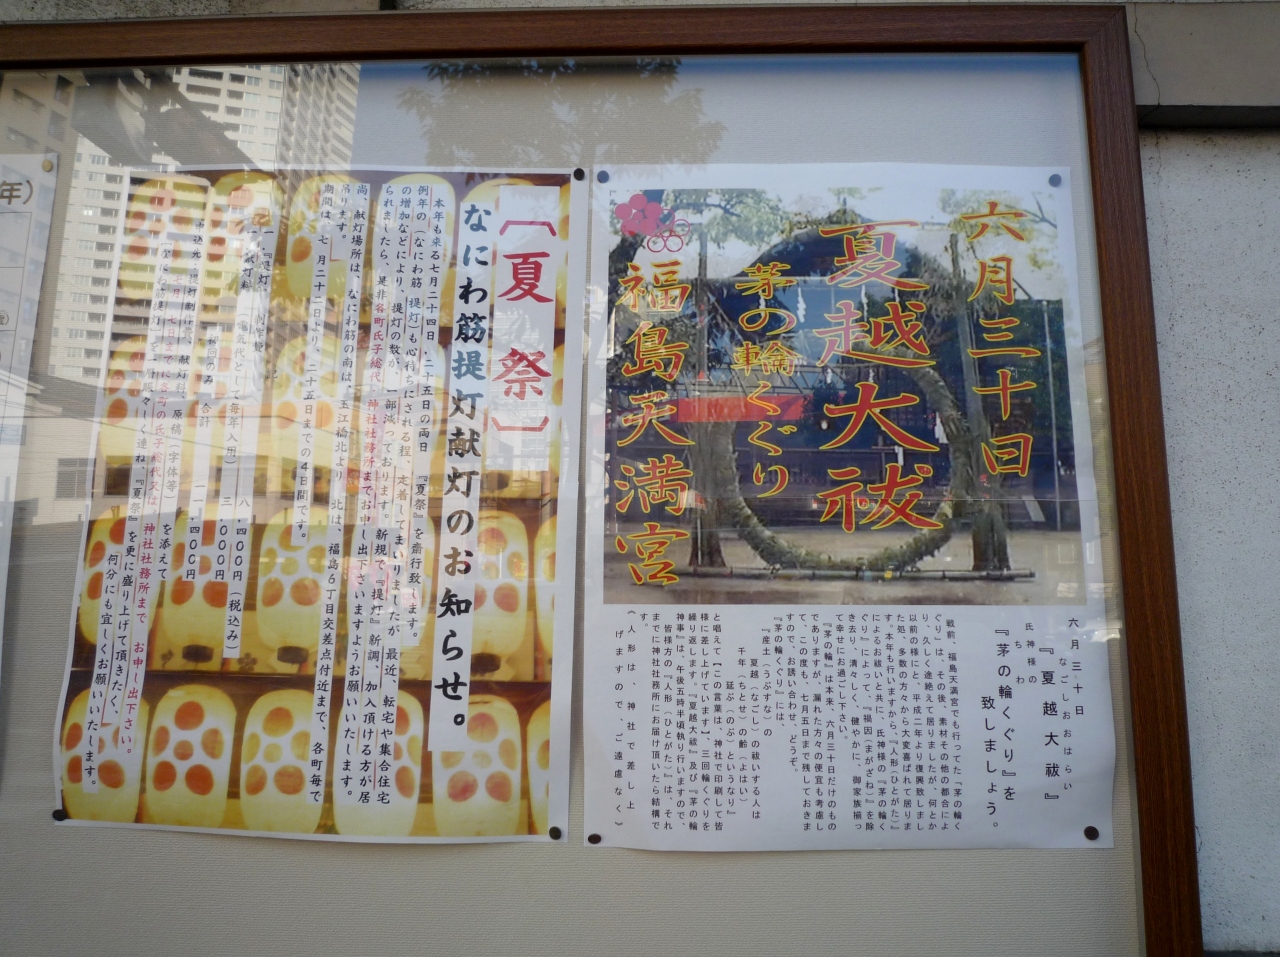 六月三十日
夏越大祓
茅の輪くぐり
福島天満宮
六月三十日
なごしおおはらい
『夏越大祓』
氏神様の
ちのわ
『茅の輪くぐり』を
致しましょう。
戦前、福島天満宮でも行ってた『茅の輪く
ぐり』は、その後、素材その他の都合によ
り、久しく途絶えて居りましたが、何とか
以前の様にと、平成二年より復興致しまし
た処、多数の方々から大変喜ばれて居りま
す。本年も行いますから、『人形（ひとがた）』
によるお祓いと共に、氏神様の『茅の輪く
ぐり』によって、『禍因（まがざね）』を除
き去り、清々しく、健やかに、御家族揃っ
て幸せにお過ごし下さい。
『茅の輪』は本来、六月三十日だけのもの
でありますが、漏れた方々の便宜も考慮し
て、この度も、七月五日まで残しておきま
すので、お誘い合わせ、どうぞ。
『茅の輪くぐり』には、
『産土（うぶすな）の
夏越（なごし）の祓いする人は
千年（ちとせ）の齢（よはい）
延ぶ（のぶ）というなり』
と唱えて【この言葉は、神社で印刷して皆
様に差し上げています】、三回輪くぐりを
繰り返します。『夏越大祓』及び『茅の輪
神事』は、午後五時半頃執り行いますので、
皆様方の『人形（ひとがた）』は、それ
までに神社社務所にお届け頂いたら結構で
す。
（人形は、神社で差し上
げますので、ご遠慮なく）
［夏祭］
なにわ筋提灯献灯のお知らせ。
本年も来る七月二十四日・二十五日の両日 『夏祭』を齋行致します。
例年の（なにわ筋 提灯）も心待ちにされる程、定着してまいりましたが 最近、転宅や集合住宅
の増加などにより、提灯の数が、一部減っております。新規で『提灯』新調、加入頂ける方が居
られましたら、是非各町氏子総代、神社社務所までお申し出下さいますようお願いいたします。
尚、献灯場所は、なにわ筋の南は、玉江橋北より 北は、福島６丁目交差点付近まで、各町毎で
吊ります。
期間は、七月二十二日より、二十五日までの４日間です。
八、四〇〇円（税込み）
（電気代として毎年入用） 三、〇〇〇円
合計 一一、四〇〇円
を添えて
各町の氏子総代又は 神社社務所まで お申し出下さい。
賑々しく連ね、『夏祭』を更に盛り上げて頂きたく、
何分にも宜しくお願いいたします。
年）